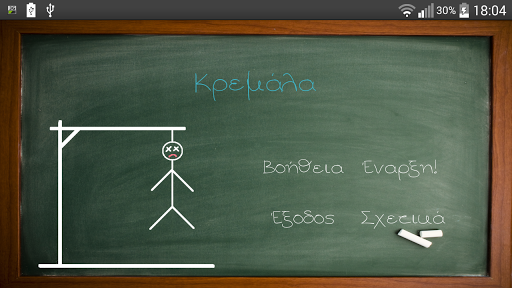 30% 18:04
Κρεμάλα
Βοήθεια Έναρξη!
Έξοδος Σχετικά